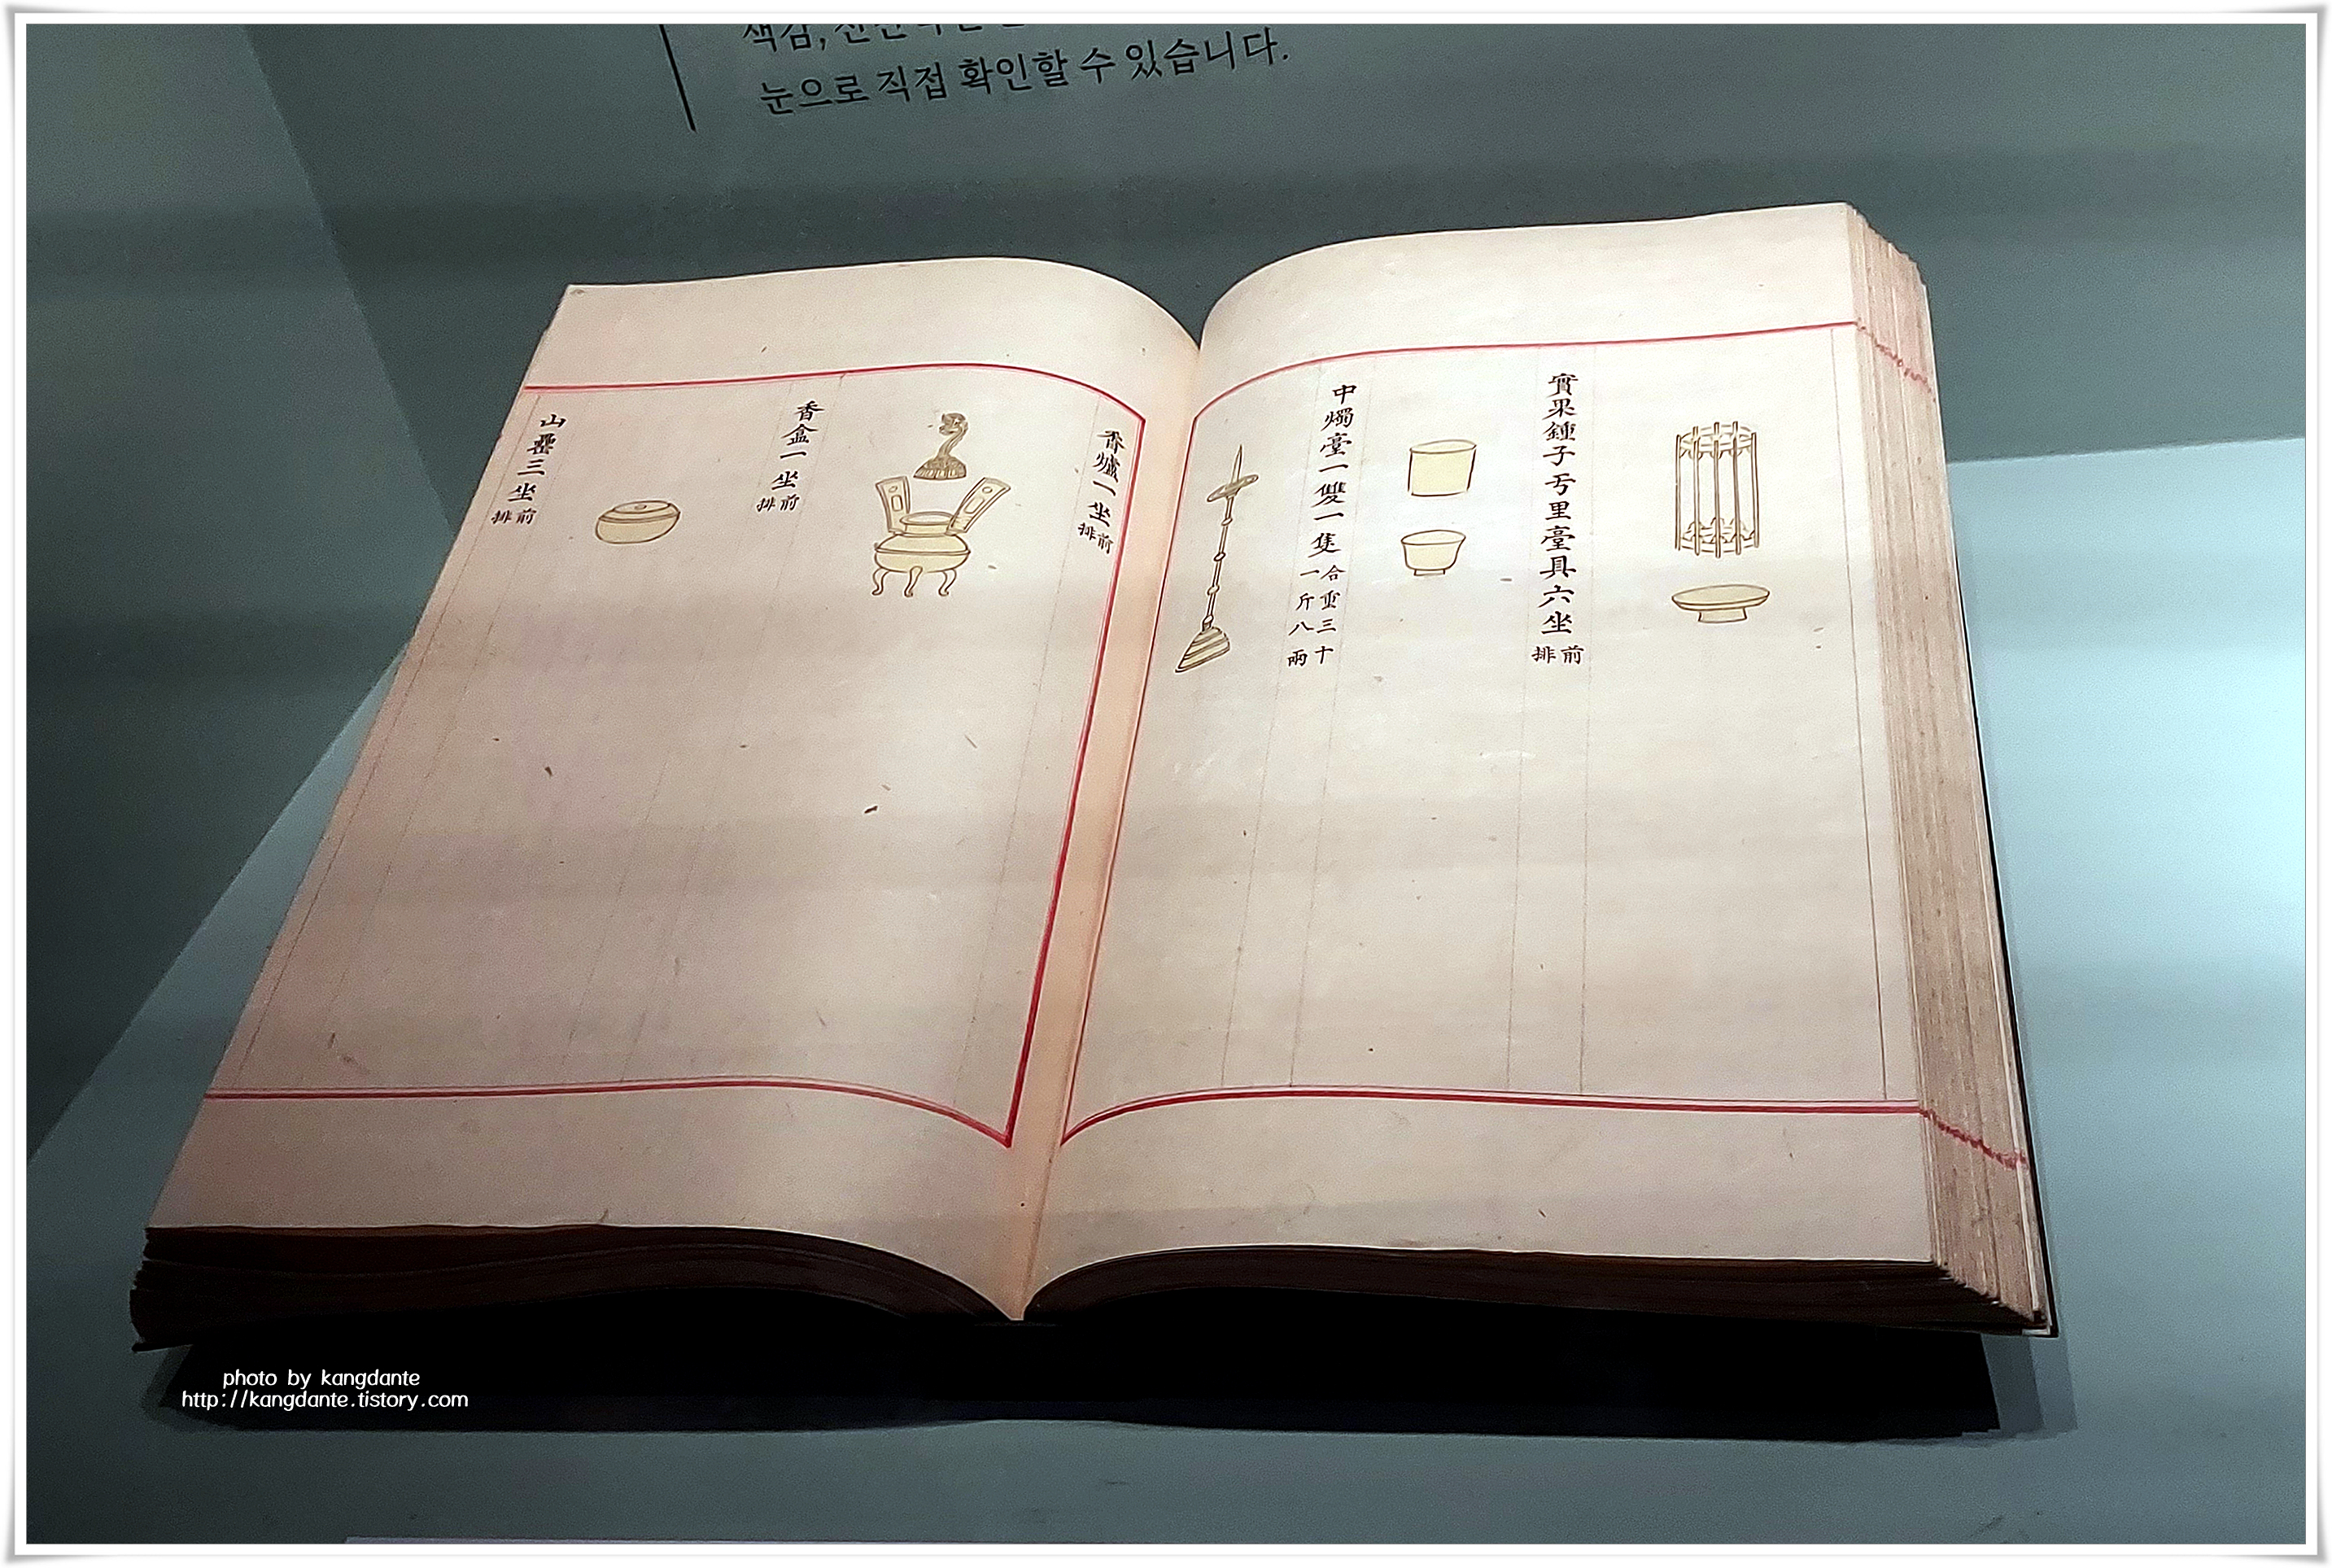 색감,
눈으로 직접 확인할 수 있습니다.
實果鍾子亐里臺具六坐前排
中燭臺一雙一隻合重三十一斤八兩
香爐一坐前排
香盒一坐前排
山罍三坐前排
photo by kangdante
http://kangdante.tistory.com